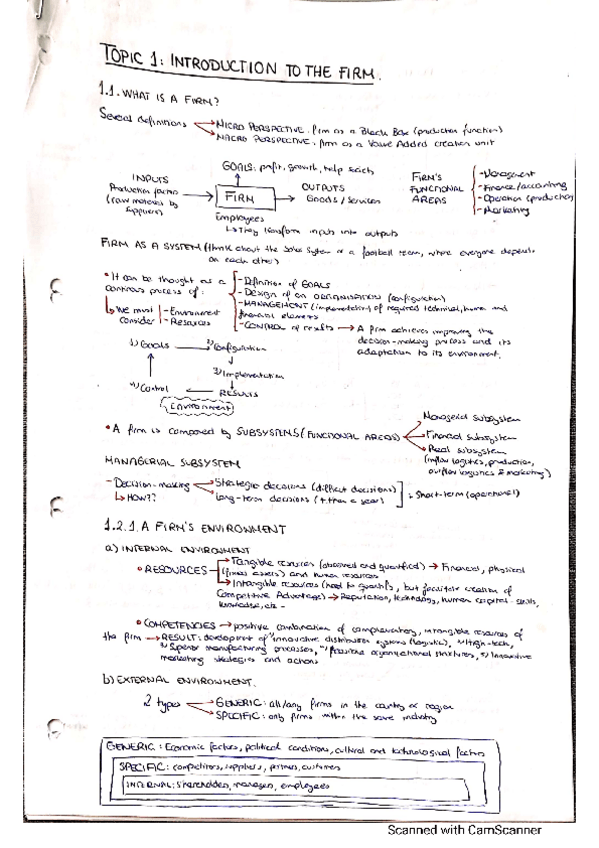 TOPIC 1: INTRODUCTION TO THE FIRM.
1.1. WHAT IS A FIRM?
Several definitions → MICRO PERSPECTIVE: firm as a Black Box (production function)
→ MACRO PERSPECTIVE: firm as a Value Added creation unit
GOALS: profit, growth, help society
INPUTS
Production factors
(raw materials by
suppliers)
FIRM
OUTPUTS
Goods / Services
Employees
↳ They transform inputs into outputs
FIRM'S
FUNCTIONAL
AREAS
- Management
- Finance/accounting
- Operation (production)
- Marketing
FIRM AS A SYSTEM (think about the Solar System or a football team, where everyone depends
on each other)
• It can be thought as a
continuos process of:
- Definition of GOALS
- Design of an ORGANISATION (configuration)
- MANAGEMENT (implementation) of required technical, human and
financial elements
- CONTROL of results → A firm achieves improving the
decision-making process and its
adaptation to its environment.
↳ We must
consider
- Environment
- Resources
1) Goals
2) Configuration
3) Implementation
RESULTS
4) Control
Environment
• A firm is composed by SUBSYSTEMS (FUNCTIONAL AREAS)
Managerial subsystem
Financial subsystem
Real subsystem
(inflow logistics, production,
outflow logistics & marketing)
MANAGERIAL SUBSYSTEM
- Decision-making → Strategic decisions (difficult decisions)
↳ HOW??
→ Long-term decisions (+ than a year)
Short-term (operational)
1.2.1. A FIRM'S ENVIRONMENT
a) INTERNAL ENVIRONMENT
• RESOURCES
→ Tangible resources (observed and quantified) → Financial, physical
(fixed assets) and human resources
→ Intangible resources (hard to quantify, but facilitate creation of
Competitive Advantage) → Reputation, technology, human capital: skills,
knowledge, etc -
• COMPETENCIES → positive combination of complementary, intangible resources of
the firm → RESULT: development of innovative distribution systems (logistics), High-tech,
manufacturing processes, organizational structures, Innovative
marketing strategies and actions
b) EXTERNAL ENVIRONMENT.
2 types → GENERIC: all/any firms in the country or region
→ SPECIFIC: only firms within the same industry
GENERIC: Economic factors, political conditions, cultural and technological factors
SPECIFIC: competitors, suppliers, partners, customers
INTERNAL: Shareholders, managers, employees
Scanned with CamScanner